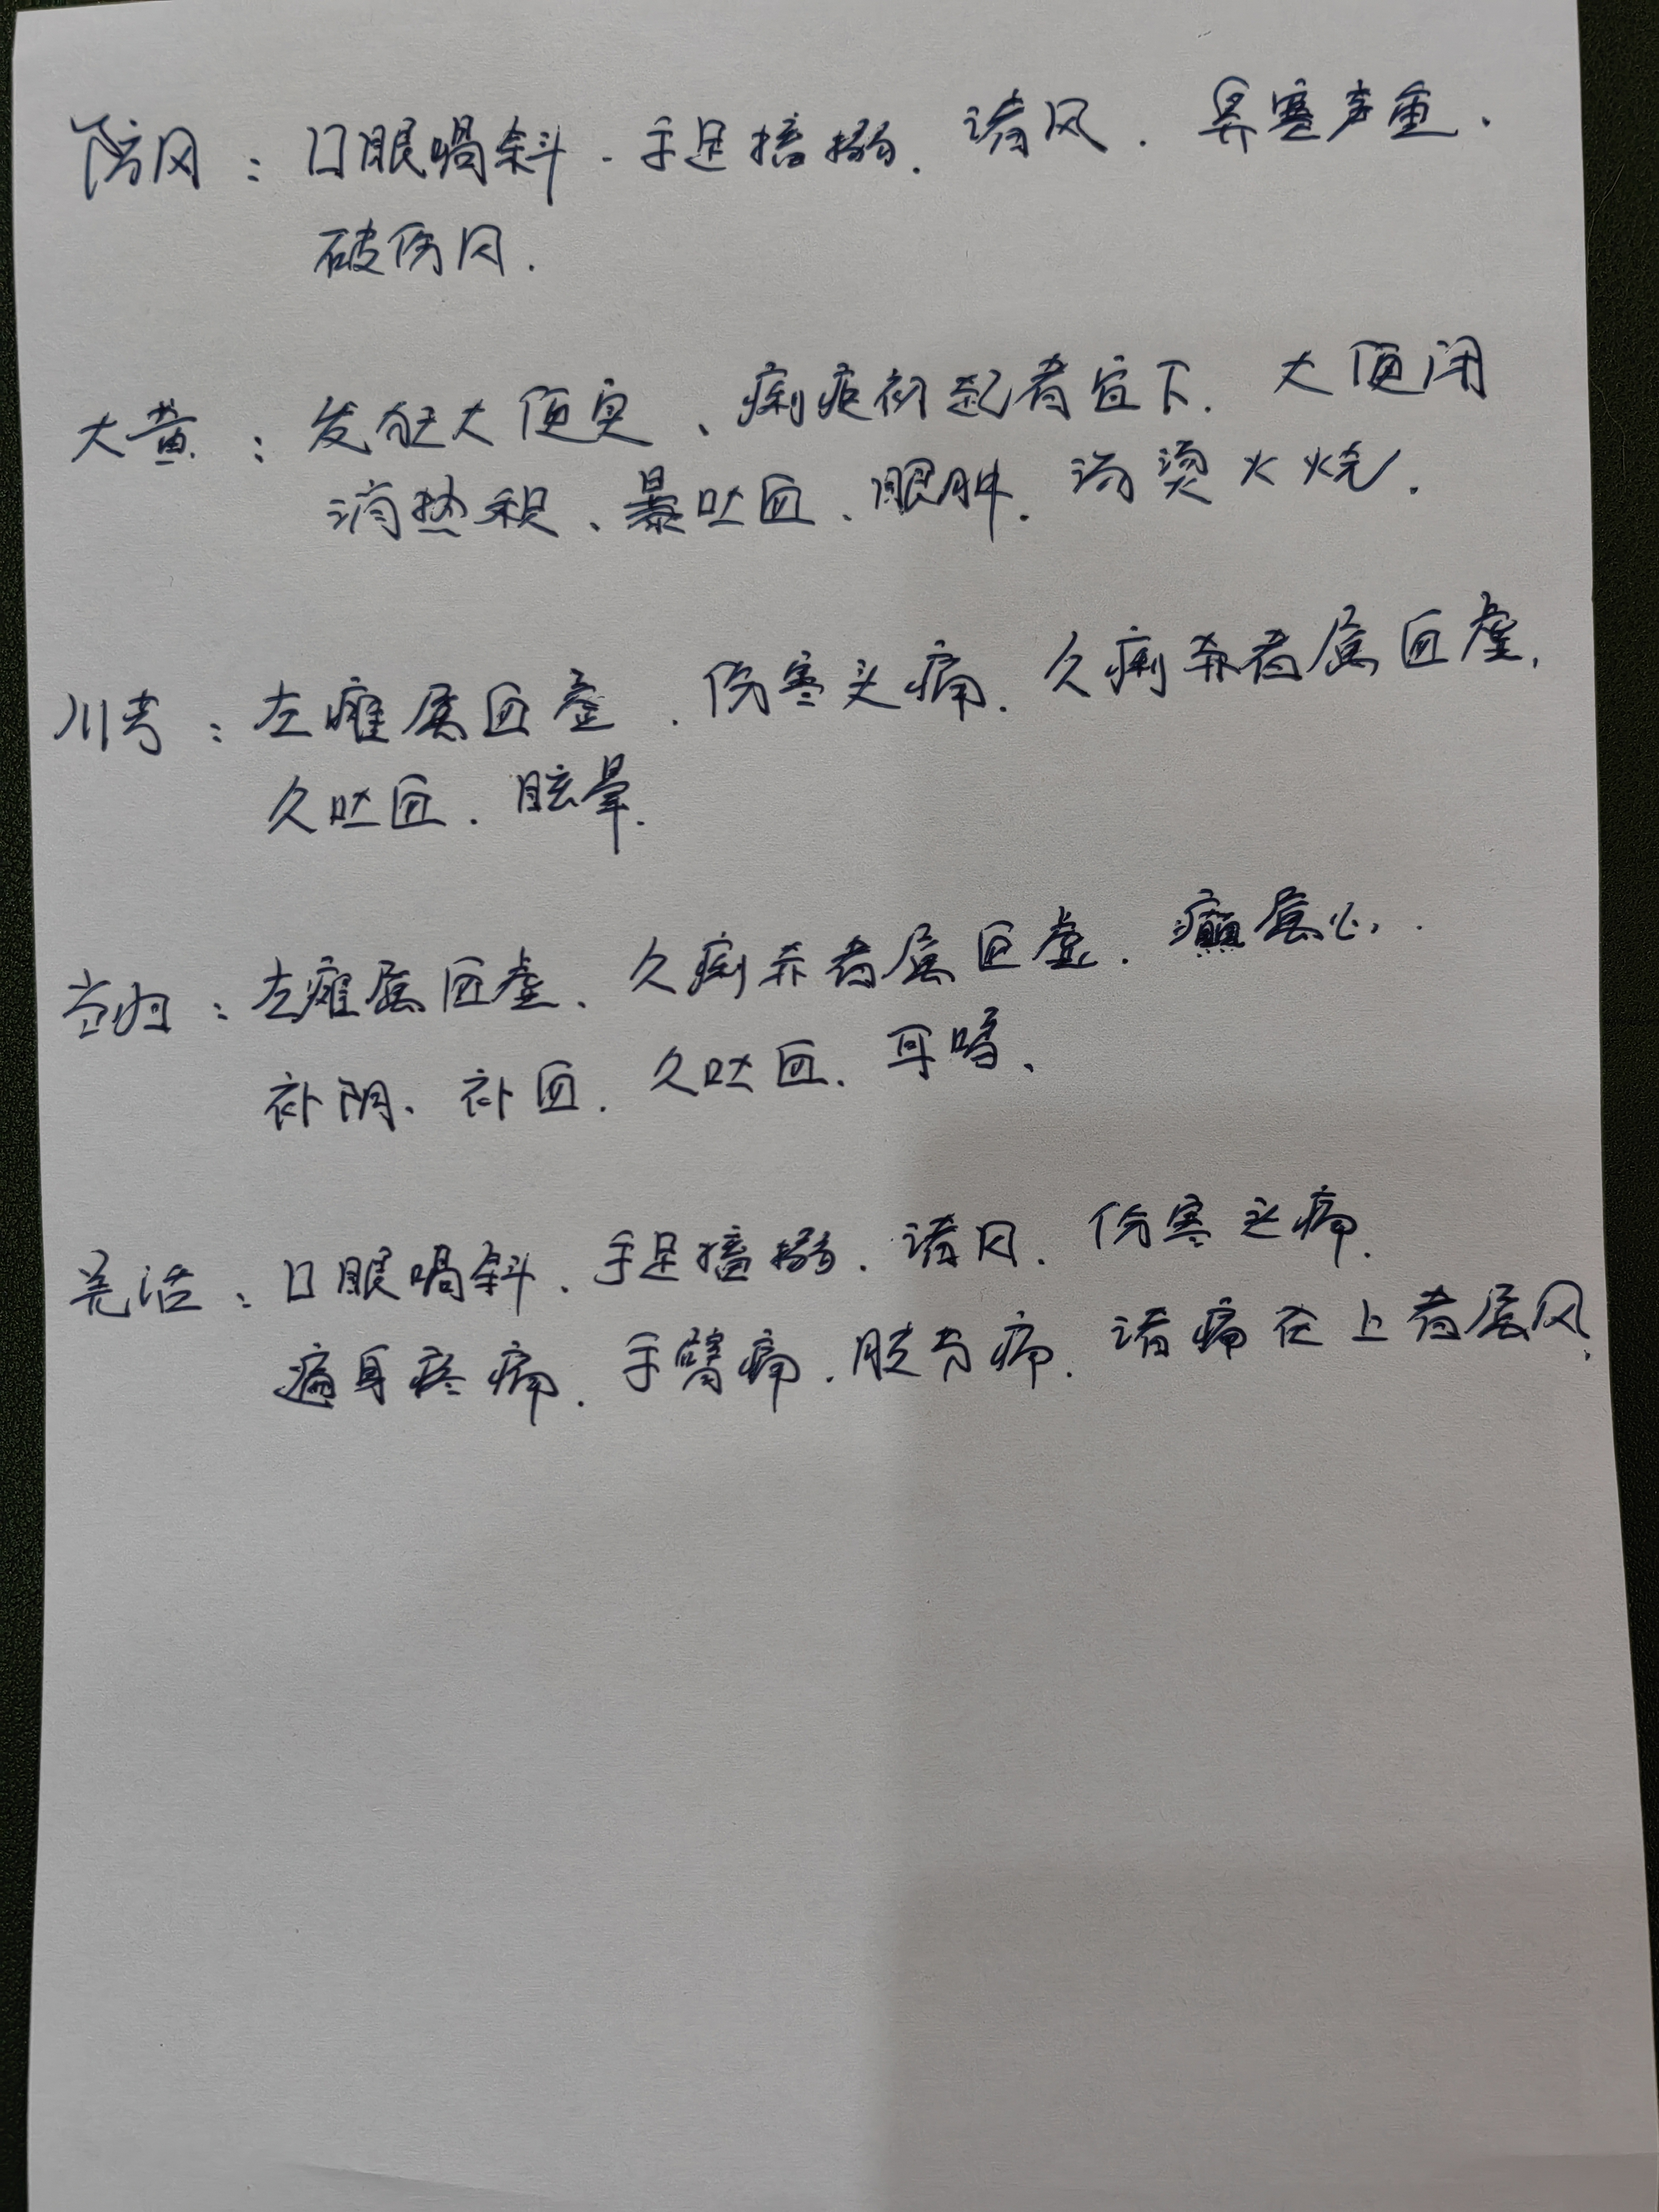 防风：口眼喎斜、手足搐搦、诸风、鼻塞声重、
破伤风.
大黄：发狂大便实、痢疾初起者宜下、大便闭
消热积、暴吐血、眼肿、汤烫火烧.
川芎：左瘫属血虚、伤寒头痛、久痢赤者属血虚、
久吐血、眩晕.
当归：左瘫属血虚、久痢赤者属血虚、癫属心、
补阴、补血、久吐血、耳鸣、
羌活：口眼喎斜、手足搐搦、诸风、伤寒头痛、
遍身疼痛、手臂痛、胱背痛、诸痛在上者属风、